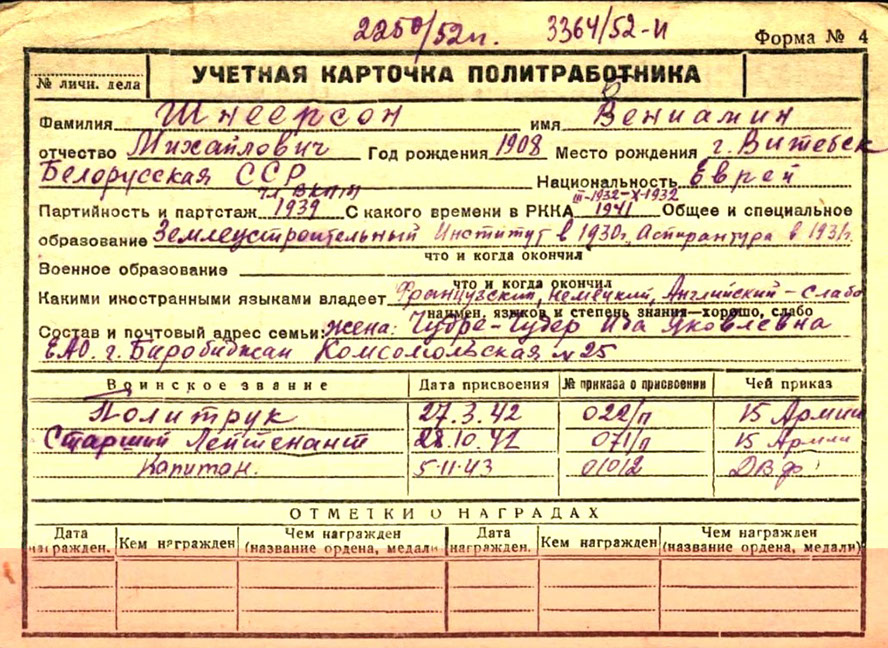 2250/52п. 3364/52-И
Форма № 4
№ личн. дела УЧЕТНАЯ КАРТОЧКА ПОЛИТРАБОТНИКА
Фамилия Шнеерсон имя Вениамин
отчество Михайлович Год рождения 1908 Место рождения г. Витебск
Белорусская ССР Национальность Еврей
чл. ВКП(б) III-1932-X-1932
Партийность и партстаж 1939 С какого времени в РККА 1941 Общее и специальное
образование Землеустроительный Институт в 1930г. Аспирантура в 1931г.
что и когда окончил
Военное образование
что и когда окончил
Какими иностранными языками владеет Французский, Немецкий, Английский - слабо
наимен. языков и степень знания—хорошо, слабо
Состав и почтовый адрес семьи: жена: Ида Яковлевна
ЕАО. г. Биробиджан Комсомольская №25
Воинское звание Дата присвоения № приказа о присвоении Чей приказ
Политрук 27.3.42 022/п 15 Армии
Старший Лейтенант 28.10.42 071/п 15 Армии
Капитан. 5-11-43 ДВф
ОТМЕТКИ О НАГРАДАХ
Дата награжден. Кем награжден Чем награжден (название ордена, медали) Дата награжден. Кем награжден Чем награжден (название ордена, медали)